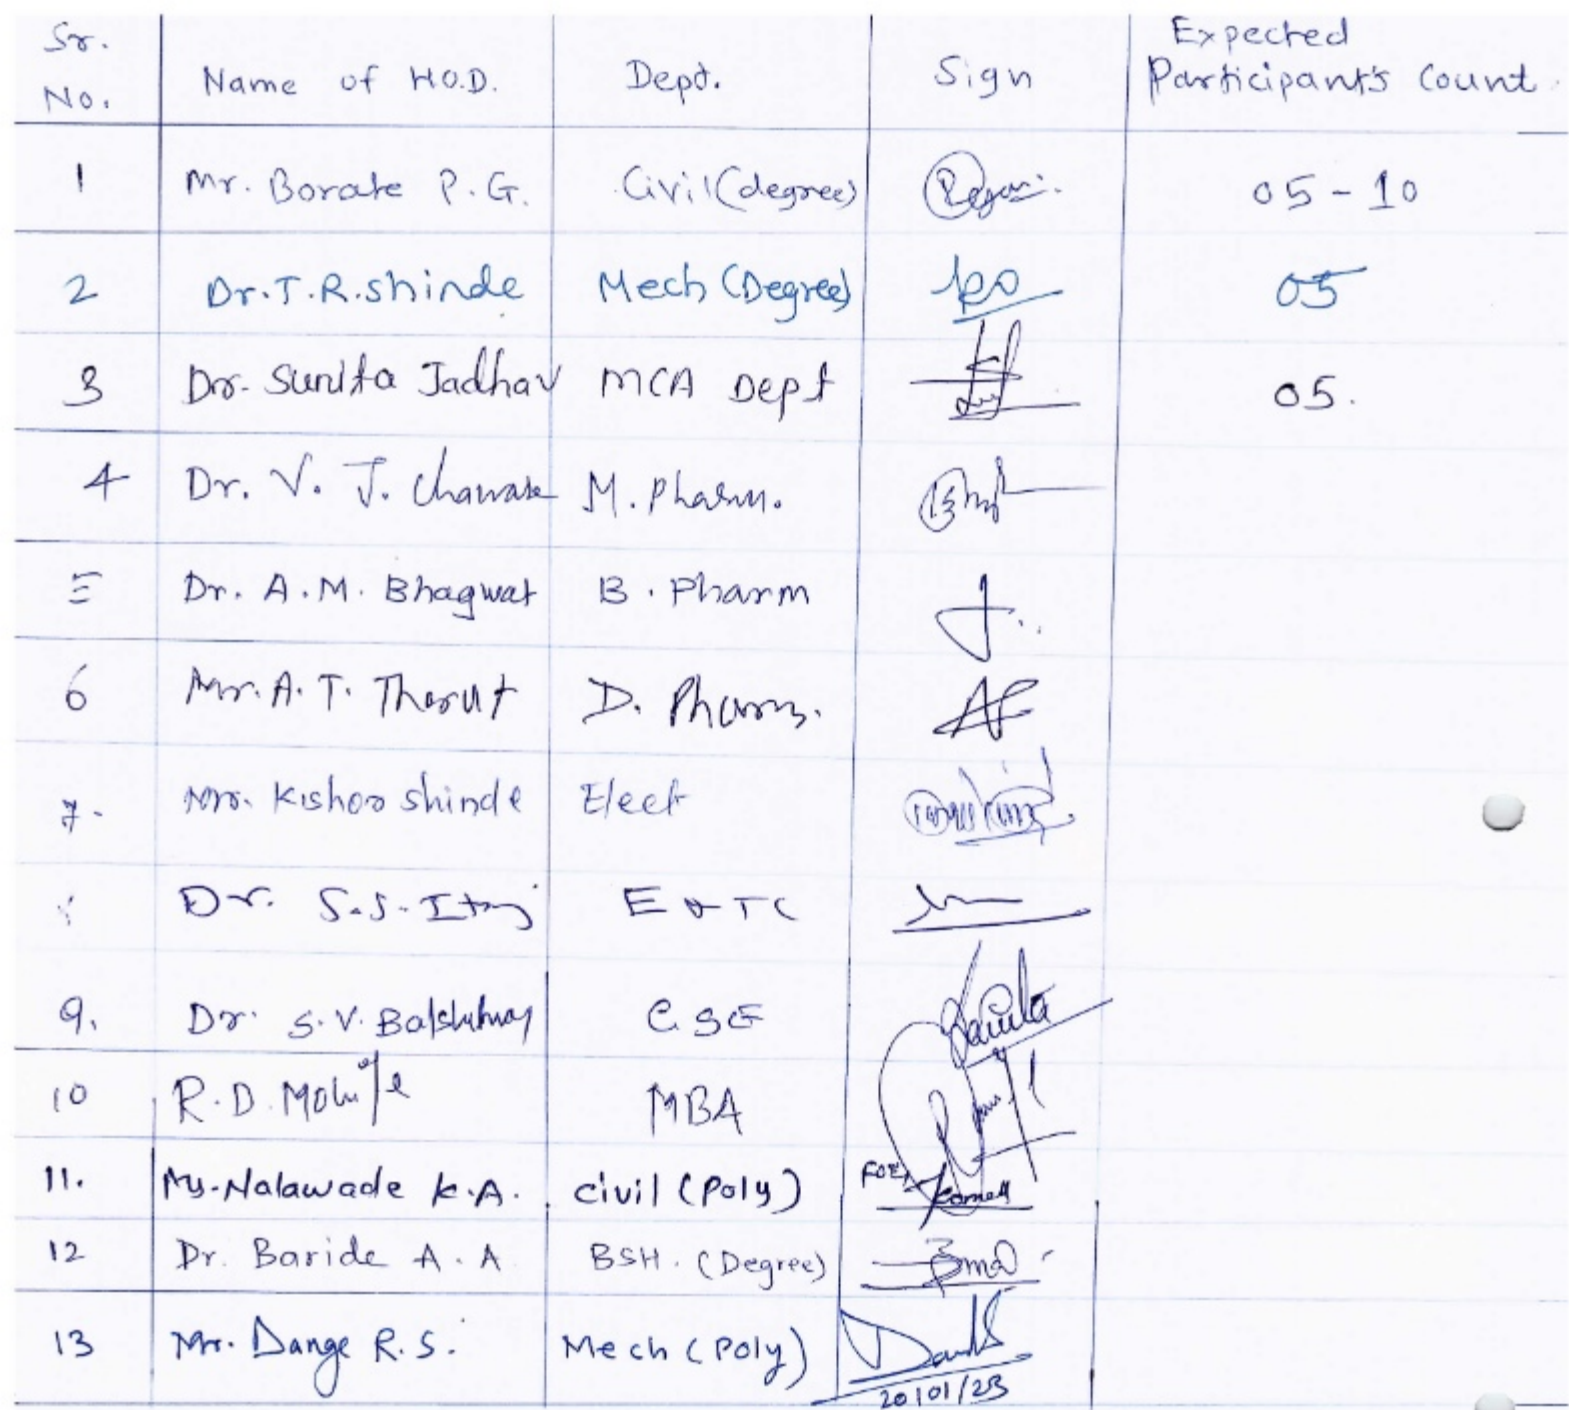 Sr. No. Name of H.O.D. Dept. Sign Expected Participant's Count
1 Mr. Borate P.G. Civil (degree) 05-10
2 Dr. T.R. Shinde Mech (Degree) 05
3 Dr. Sunita Jadhav MCA Dept 05.
4 Dr. V. J. M. Pharm.
5 Dr. A.M. Bhagwat B. Pharm
6 Mr. A. T. Thorat D. Pharm.
7. Mr. Kishor Shinde Elect
Dr. S.S. E & TC
9. Dr. S.V. CSE
10 R.D. MBA
11. Ms. Nalawade K.A. civil (Poly) FOR
12 Dr. Baride A.A BSH. (Degree)
13 Mr. Dange R.S. Mech (Poly)
20/01/23